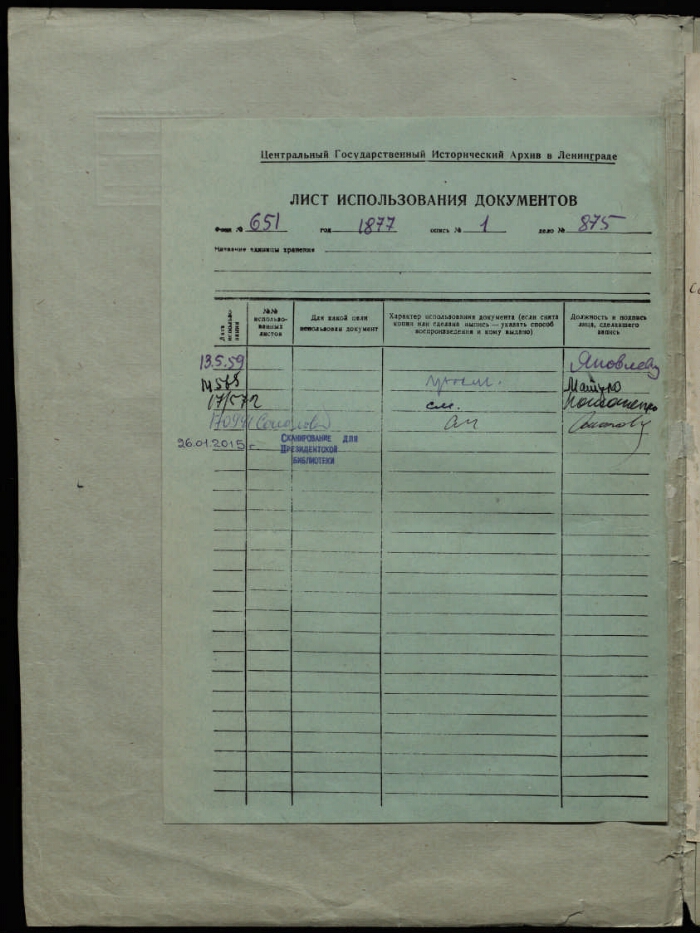 Центральный Государственный Исторический Архив в Ленинграде
ЛИСТ ИСПОЛЬЗОВАНИЯ ДОКУМЕНТОВ
Фонд № 651 год 1877 опись № 1 дело № 875
Название единицы хранения
Дата использования
№№ использованных листов
Для какой цели использован документ
Характер использования документа (если снята копия или сделана выпись — указать способ воспроизведения и кому выдено)
Должность и подпись лица, сделавшего запись
13.5.59 Яковлева
см.
26.01.2015 г. Сканирование для
Президентской
библиотеки